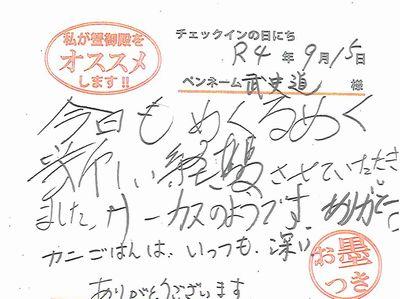 私が蟹御殿を
オススメ
します!!
チェックインの日にち
R4年9月15日
ペンネーム 武史道 様
今日もめくるめく
新しい経験させていただき
ました。サーカスのようです。ありがとう。
カニごはんは、いつも、深い
ありがとうございます
お墨
つき